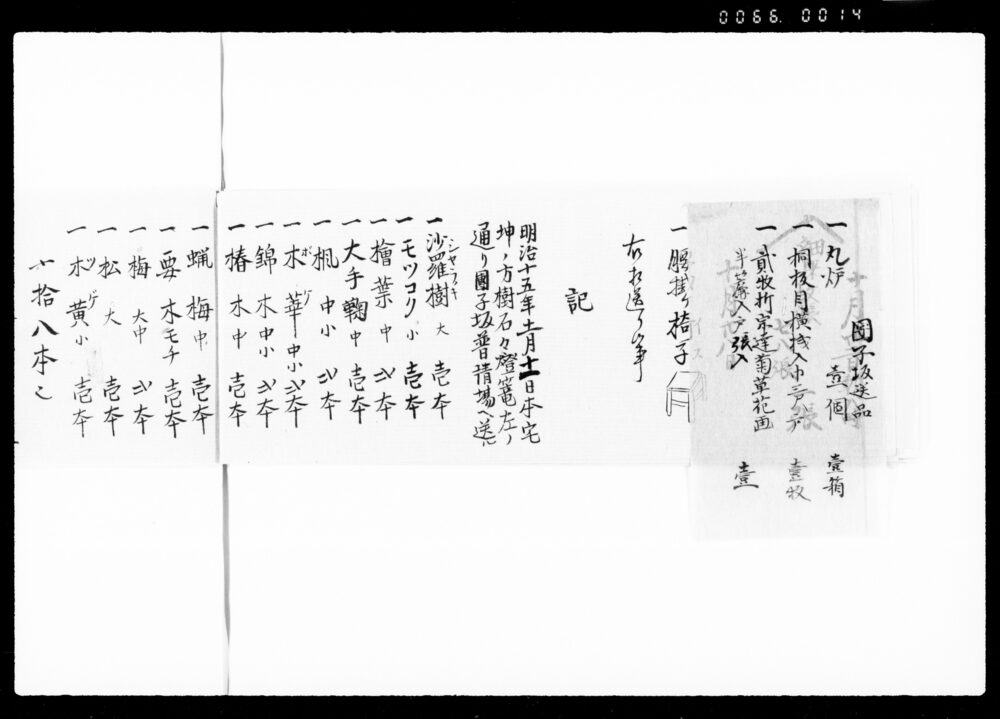 0066. 0014
團子坂送品
一 丸炉 壹個 壹箱
一 桐板月横 入 壹枚
一 貳枚折宗達菊草花画
半 入戸張入 壹
一 腰掛ケ椅子
右相送ル事
記
明治十五年十一月十一日本宅
坤ノ方樹石々燈篭左ノ
通り團子坂普請場ヘ送ル
一 沙羅樹 大 壱本
シャラノキ
一 モツコク 小 壱本
一 檜葉 中 弐本
一 大手鞠 中 壱本
一 楓 中小 弐本
一 木華 中小 弐本
ボケ
一 錦木 中小 弐本
一 椿 木中 壱本
一 蝋梅 中 壱本
一 要木モチ 壱本
一 梅 大中 弐本
一 松 大 壱本
一 木黄 小 壱本
ツゲ
〆拾八本也